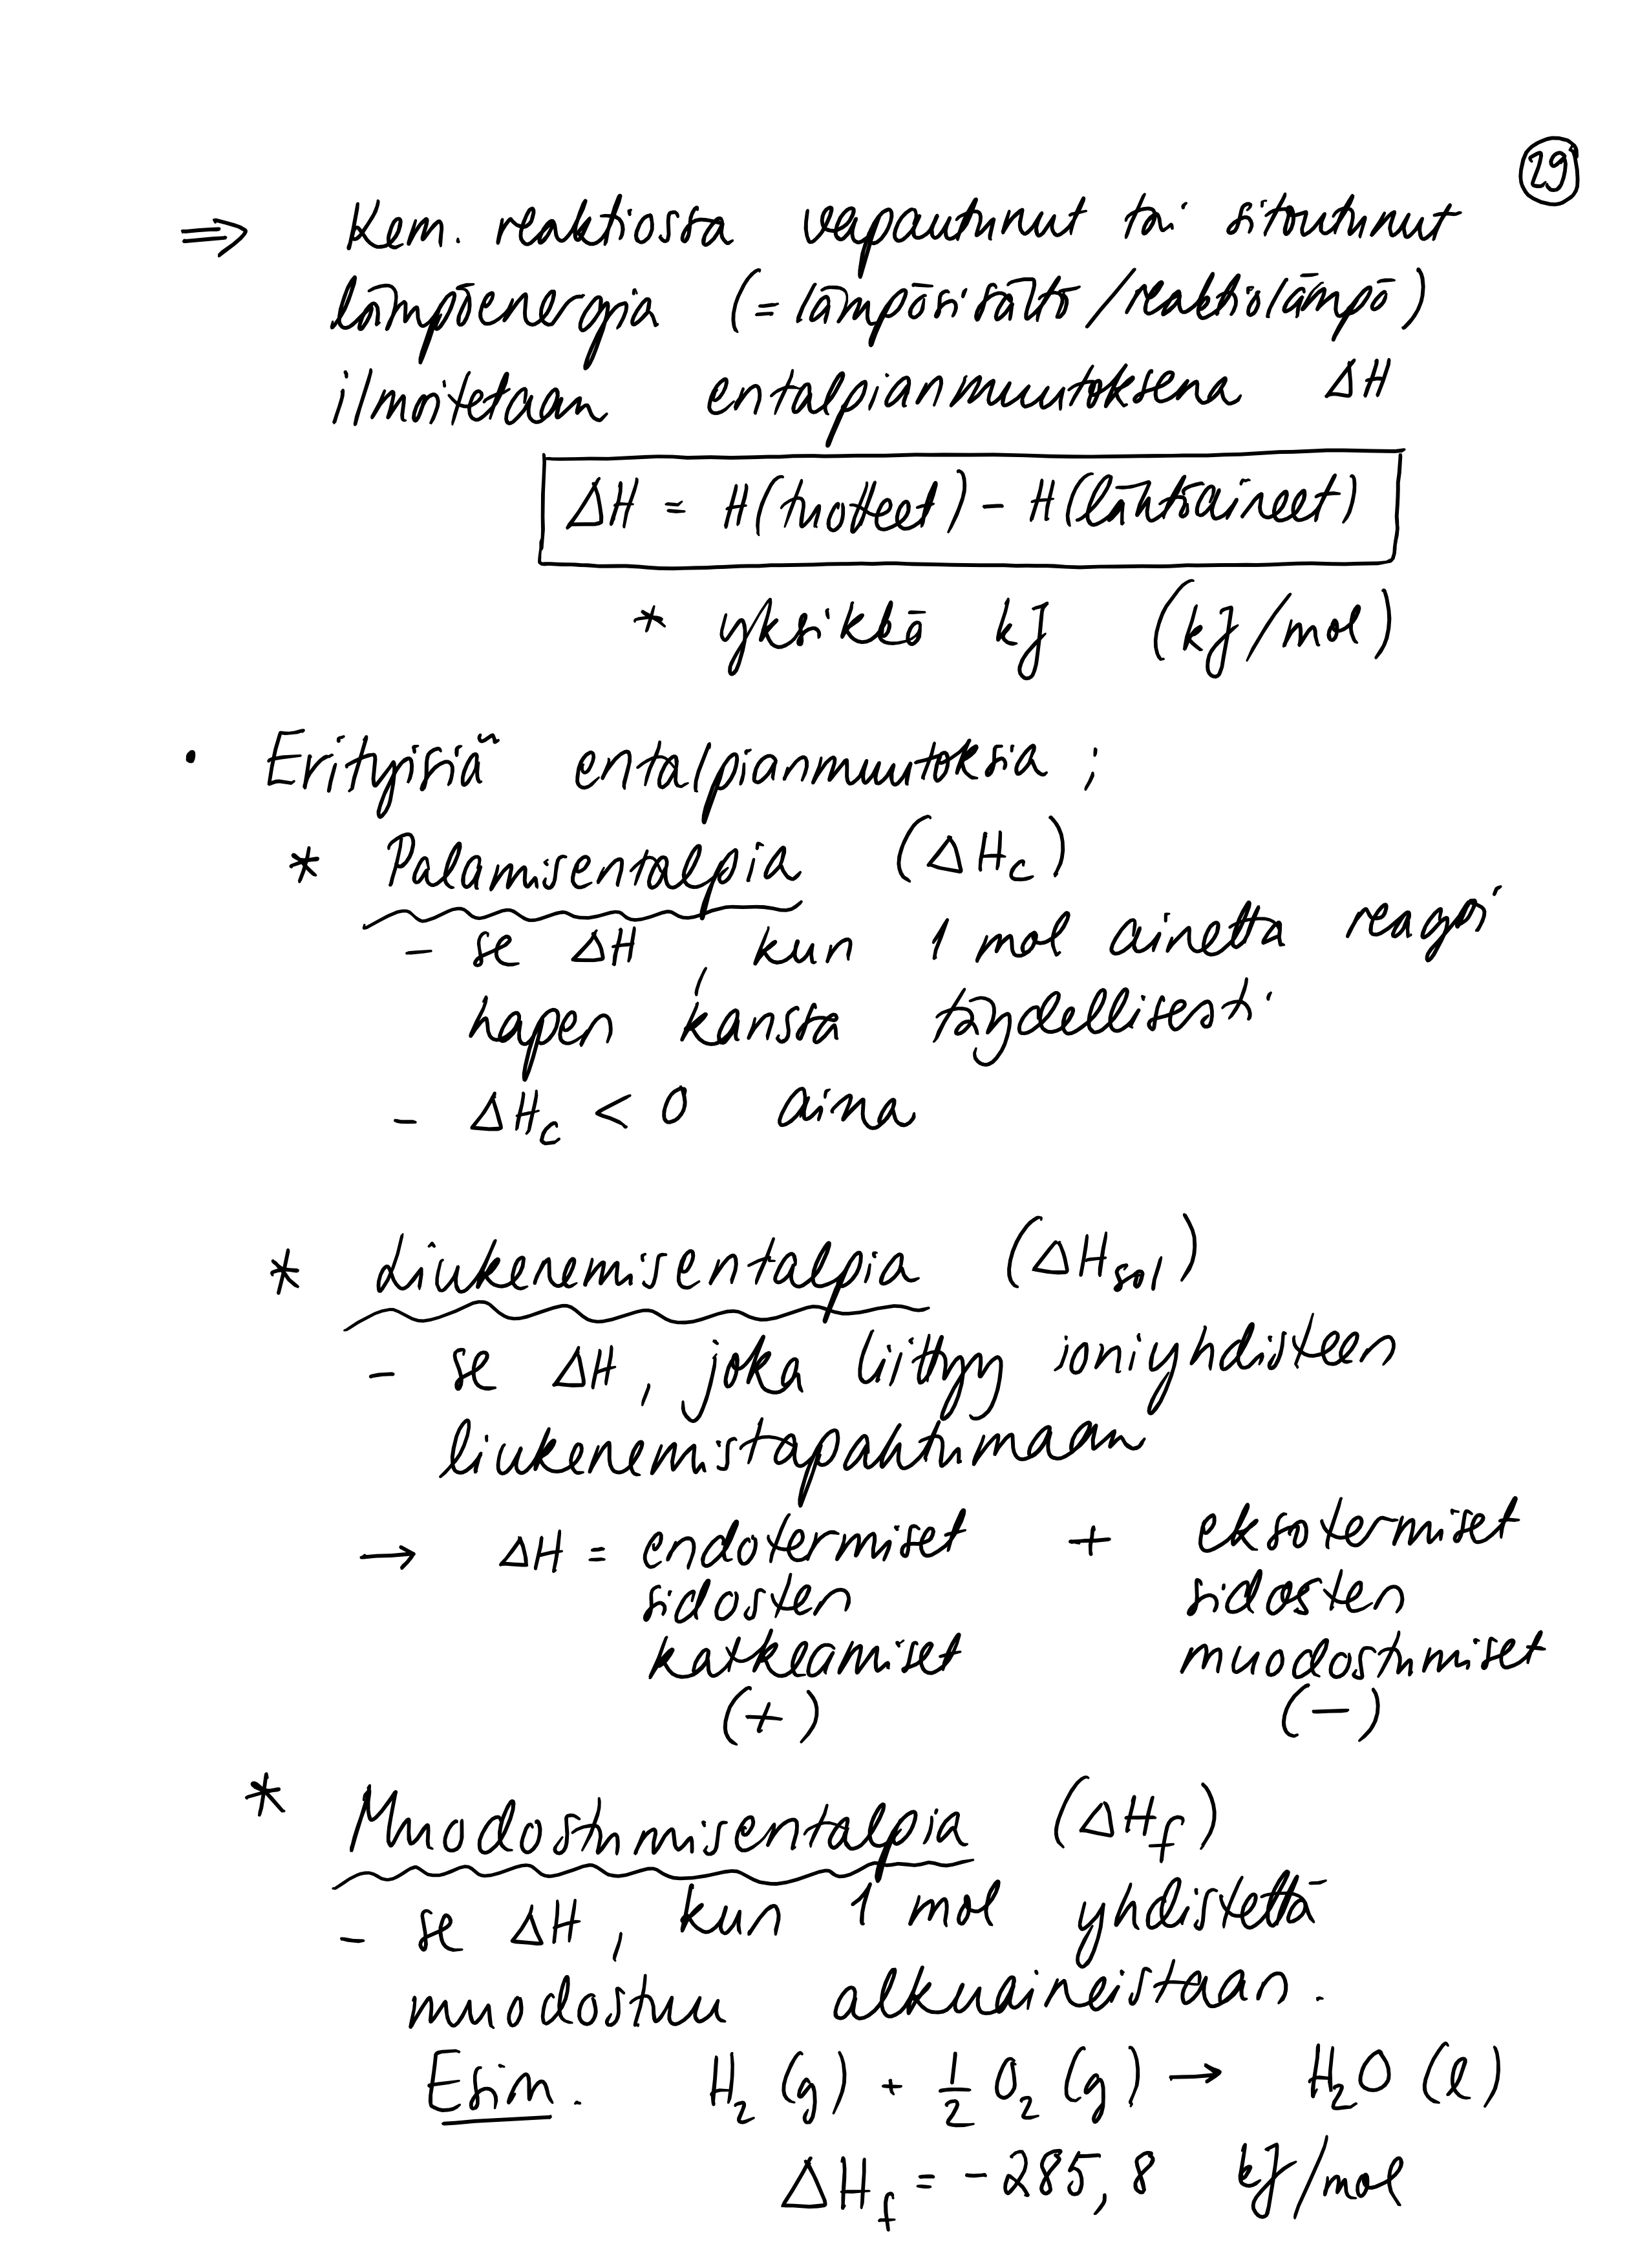 29
⇒ Kem. reaktiossa vapautunut tai sitoutunut
lämpöenergia (= lämpösisältö/reaktiolämpö)
ilmoitetaan entalpianmuutoksena ΔH
ΔH = H(tuotteet) - H(lähtöaineet)
* yksikkö kJ (kJ/mol)
• Erityisiä entalpianmuutoksia ;
* Palamisentalpia (ΔH_c)
- se ΔH, kun 1 mol ainetta reagoi
hapen kanssa täydellisesti
- ΔH_c < 0 aina
* Liukenemisentalpia (ΔH_sol)
- se ΔH, joka liittyy ioniyhdisteen
liukenemistapahtumaan
→ ΔH = endotermiset + eksotermiset
sidosten sidosten
katkeamiset muodostumiset
(+) (-)
* Muodostumisentalpia (ΔH_f)
- se ΔH, kun 1 mol yhdistettä
muodostuu alkuaineistaan.
Esim. H₂ (g) + 1/2 O₂ (g) → H₂O (l)
ΔH_f = -285,8 kJ/mol